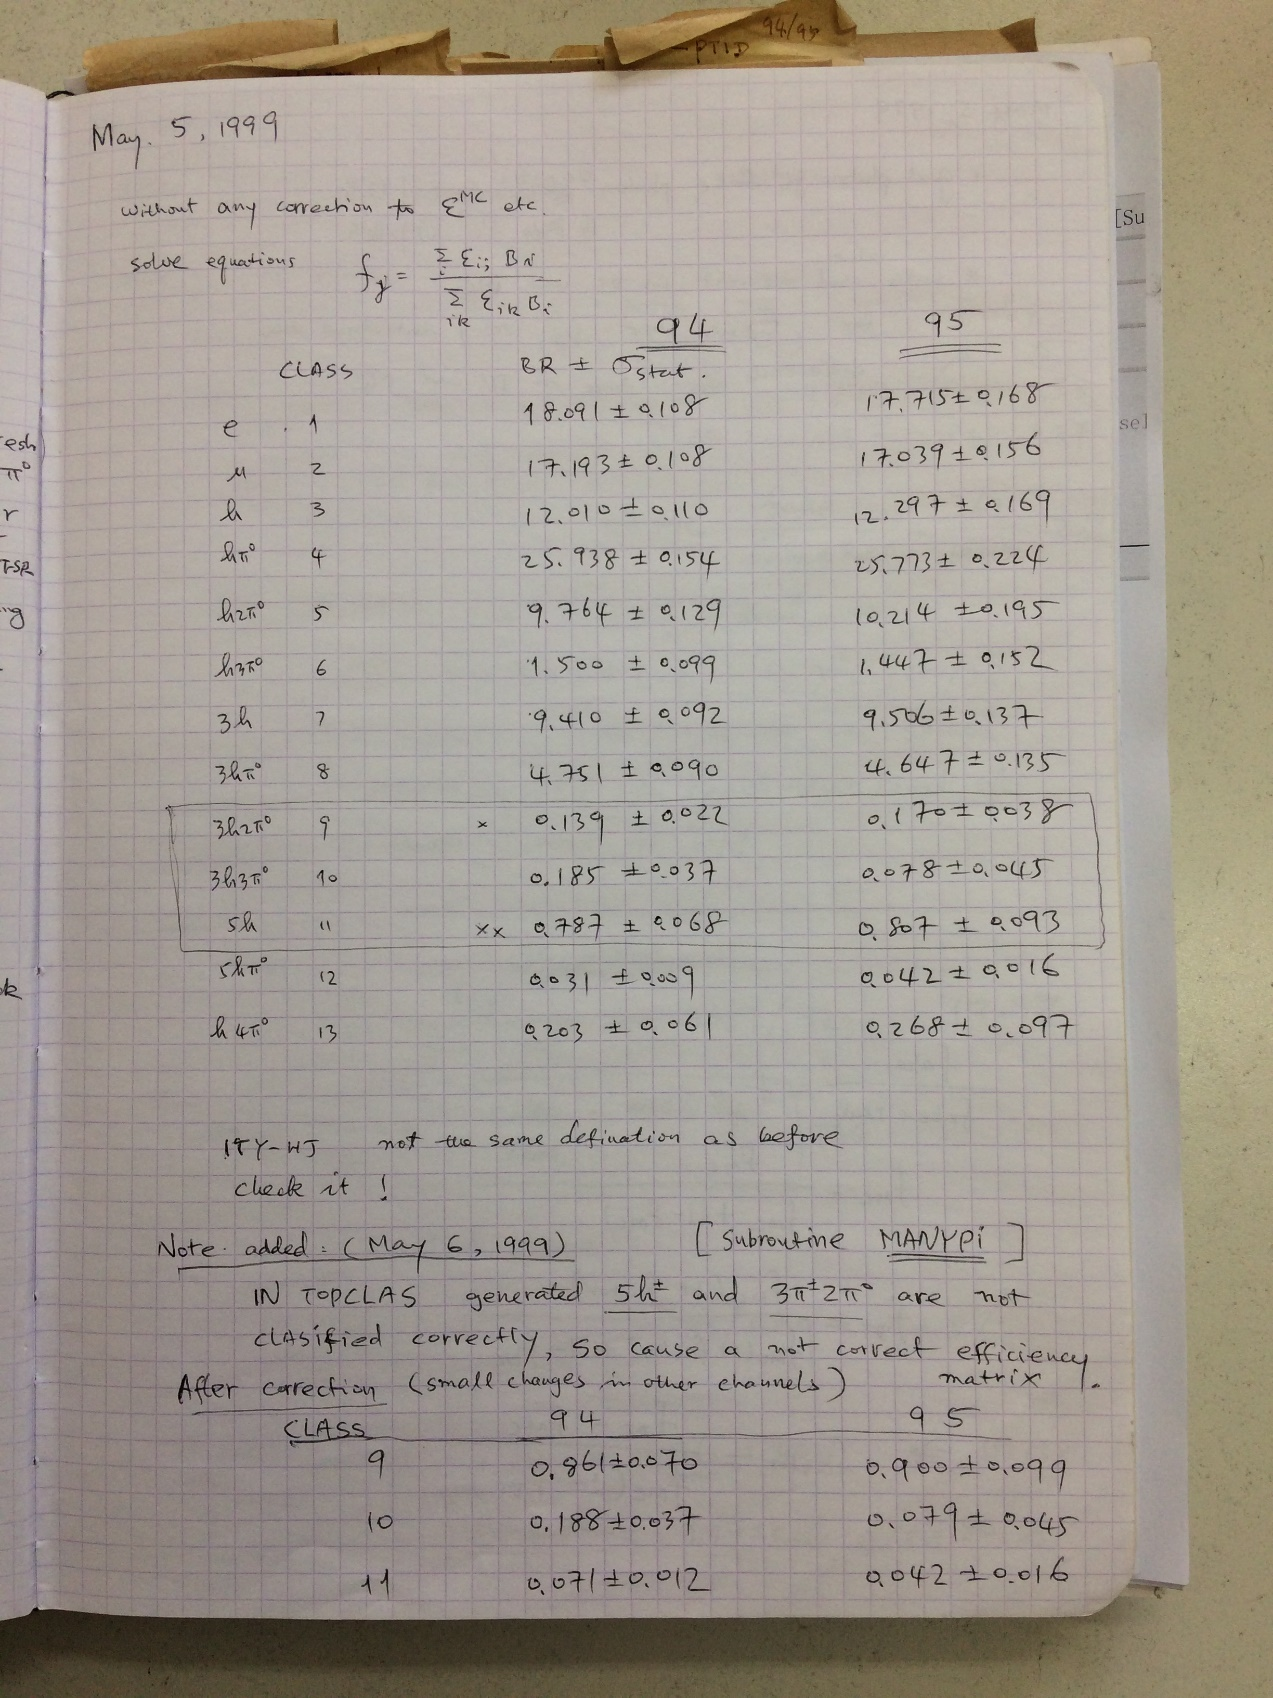 94/95
PTID
May. 5, 1999
without any correction to ε^MC etc.
solve equations f_j = Σ_i ε_ij B_i / Σ_ik ε_ik B_i
94 95
CLASS BR ± σstat.
e 1 18.091 ± 0.108 17.715 ± 0.168
μ 2 17.193 ± 0.108 17.039 ± 0.156
h 3 12.010 ± 0.110 12.297 ± 0.169
hπ° 4 25.938 ± 0.154 25.773 ± 0.224
h2π° 5 9.764 ± 0.129 10.214 ± 0.195
h3π° 6 1.500 ± 0.099 1.447 ± 0.152
3h 7 9.410 ± 0.092 9.506 ± 0.137
3hπ° 8 4.751 ± 0.090 4.647 ± 0.135
3h2π° 9 × 0.139 ± 0.022 0.170 ± 0.038
3h3π° 10 0.185 ± 0.037 0.078 ± 0.045
5h 11 ×× 0.787 ± 0.068 0.807 ± 0.093
5hπ° 12 0.031 ± 0.009 0.042 ± 0.016
h4π° 13 0.203 ± 0.061 0.268 ± 0.097
ITY-HJ not the same defination as before
check it !
Note added : (May 6, 1999) [Subroutine MANYPi]
IN TOPCLAS generated 5h± and 3π±2π° are not
clasified correctly, so cause a not correct efficiency
matrix.
After correction (small changes in other channels)
CLASS 94 95
9 0.861±0.070 0.900±0.099
10 0.188±0.037 0.079±0.045
11 0.071±0.012 0.042±0.016
esh
π°
r
TSR
ng
ok
[Su
se]